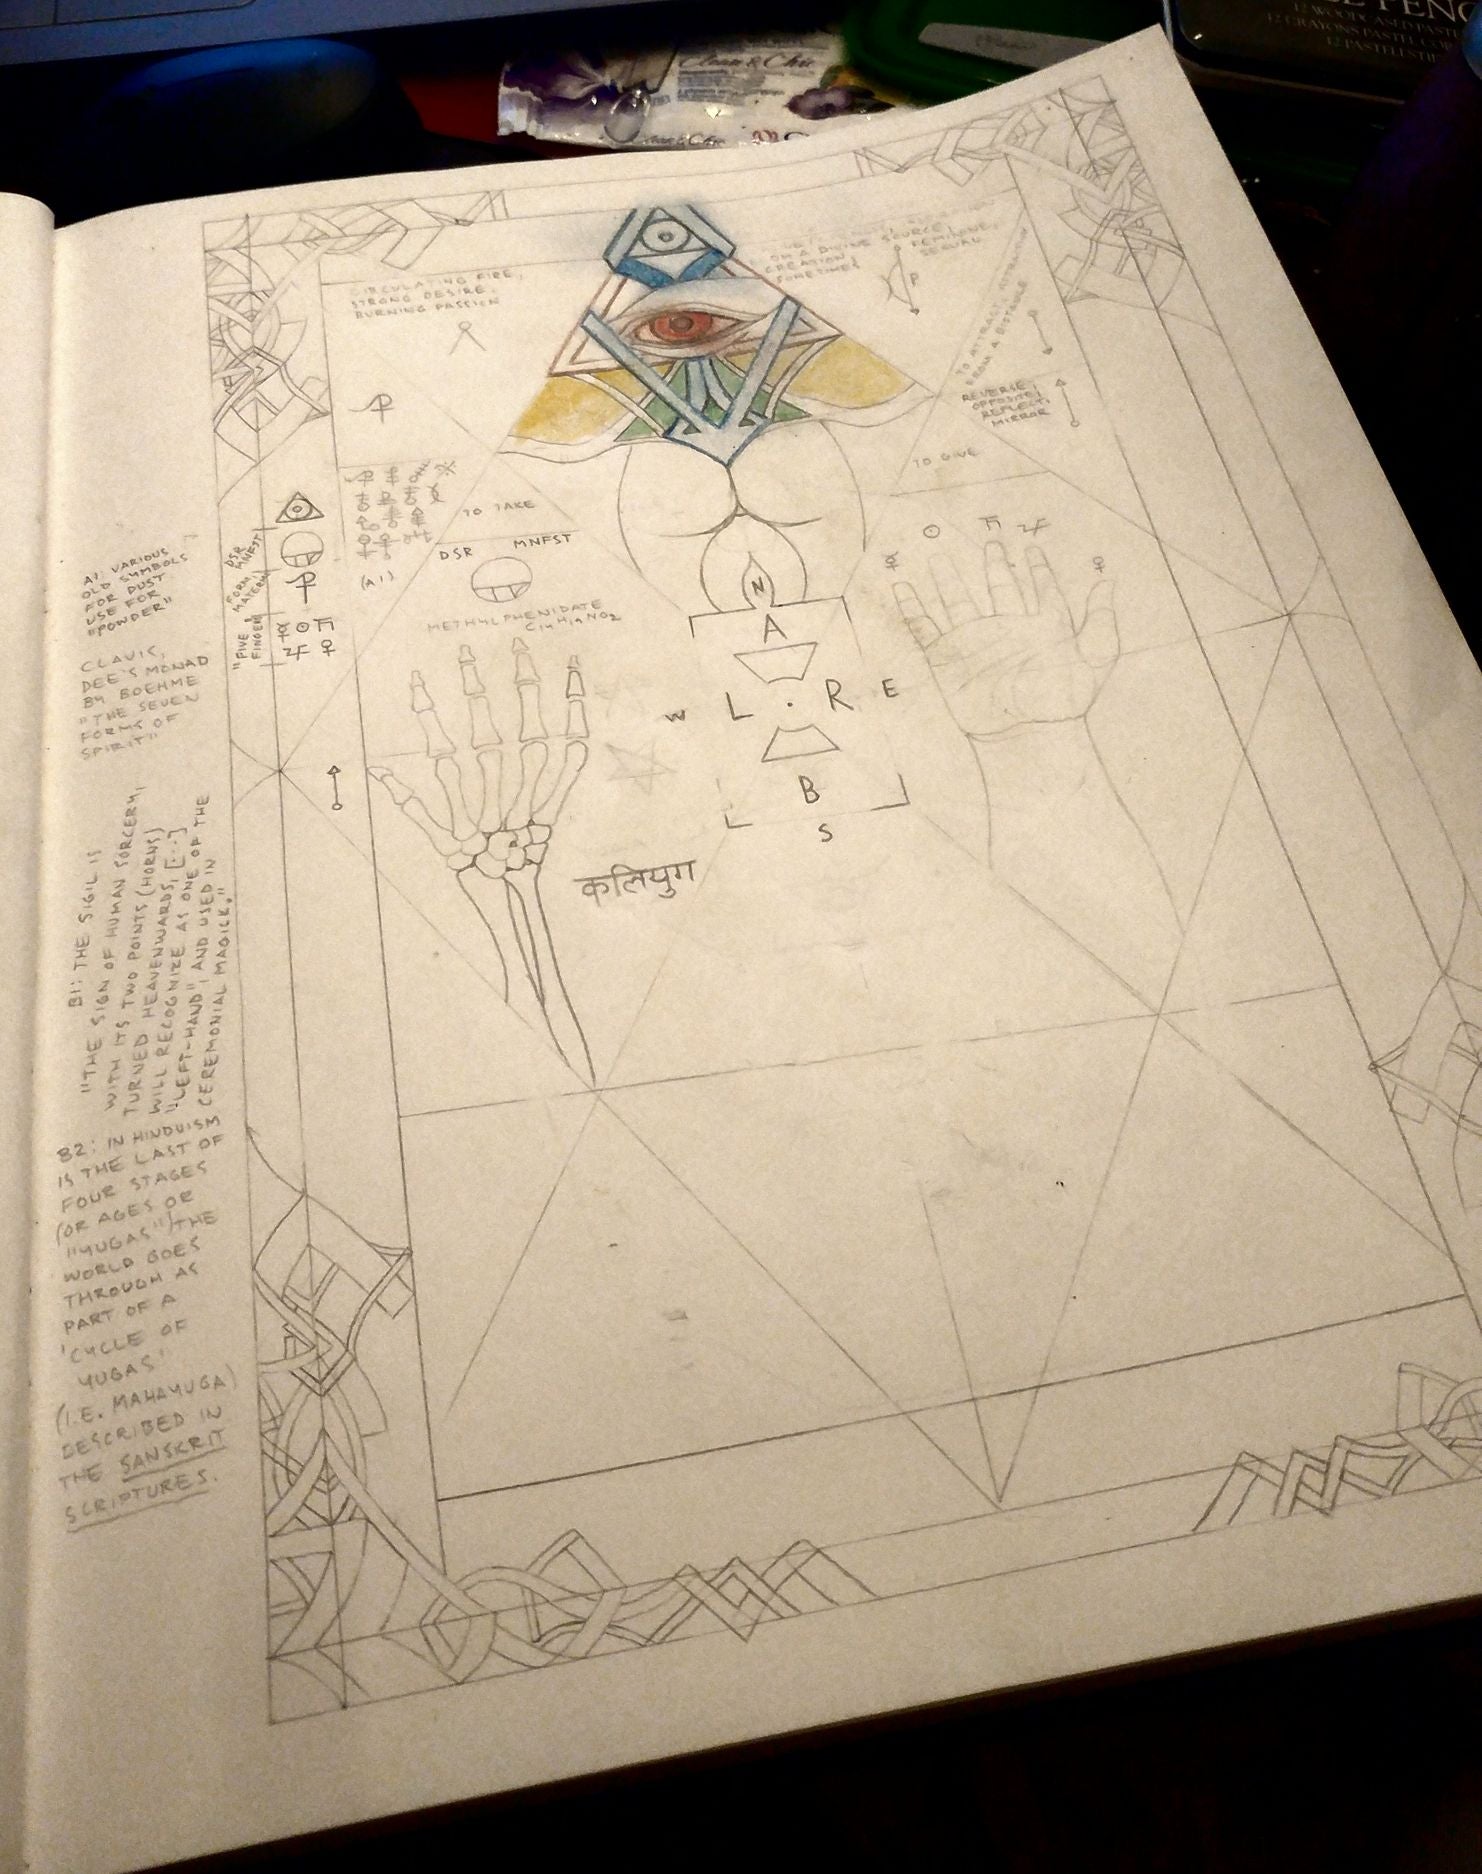 Clean & Chic
Clean & Chic
12 PASTELLSTIF
CIRCULATING FIRE,
STRONG DESIRE.
BURNING PASSION
ON A DIVINE SOURCE,
CREATION;
SOMETIMES
FEMININE,
SEXUAL
TO ATTRACT, ATTRACTION
FROM A DISTANCE
REVERSE;
OPPOSITE;
REFLECT;
MIRROR
TO GIVE
TO TAKE
DSR MNFST
(A1)
METHYLPHENIDATE
C14H19NO2
DSR
MNFST
FORM,
MATERIA
"FIVE
FINGER"
N
A
W L . R E
B
S
कलियुग
A1: VARIOUS
OLD SYMBOLS
FOR DUST
USE FOR
"POWDER"
CLAVIS,
DEE'S MONAD
BY BOEHME
"THE SEVEN
FORMS OF
SPIRIT"
B1: THE SIGIL IS
"THE SIGN OF HUMAN SORCERY,
WITH ITS TWO POINTS (HORNS)
TURNED HEAVENWARDS, [...]
WILL RECOGNIZE AS ONE OF THE
"LEFT-HAND", AND USED IN
CEREMONIAL MAGICK."
B2: IN HINDUISM
IS THE LAST OF
FOUR STAGES
(OR AGES OR
"YUGAS") THE
WORLD GOES
THROUGH AS
PART OF A
'CYCLE OF
YUGAS'
(I.E. MAHAYUGA)
DESCRIBED IN
THE SANSKRIT
SCRIPTURES.